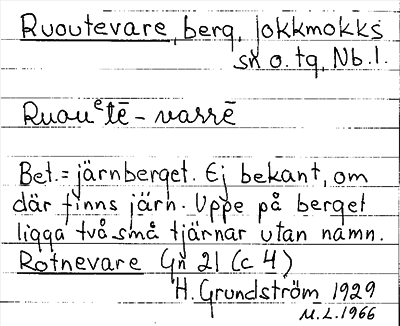 Ruoutevare, berg, Jokkmokks
sn o. tg, Nb. l.
Ruouᵉtē – varrē
Bet. = järnberget. Ej bekant, om
där finns järn. Uppe på berget
ligga två små tjärnar utan namn.
Rotnevare Gn 21 (c 4)
H. Grundström 1929
M.L. 1966